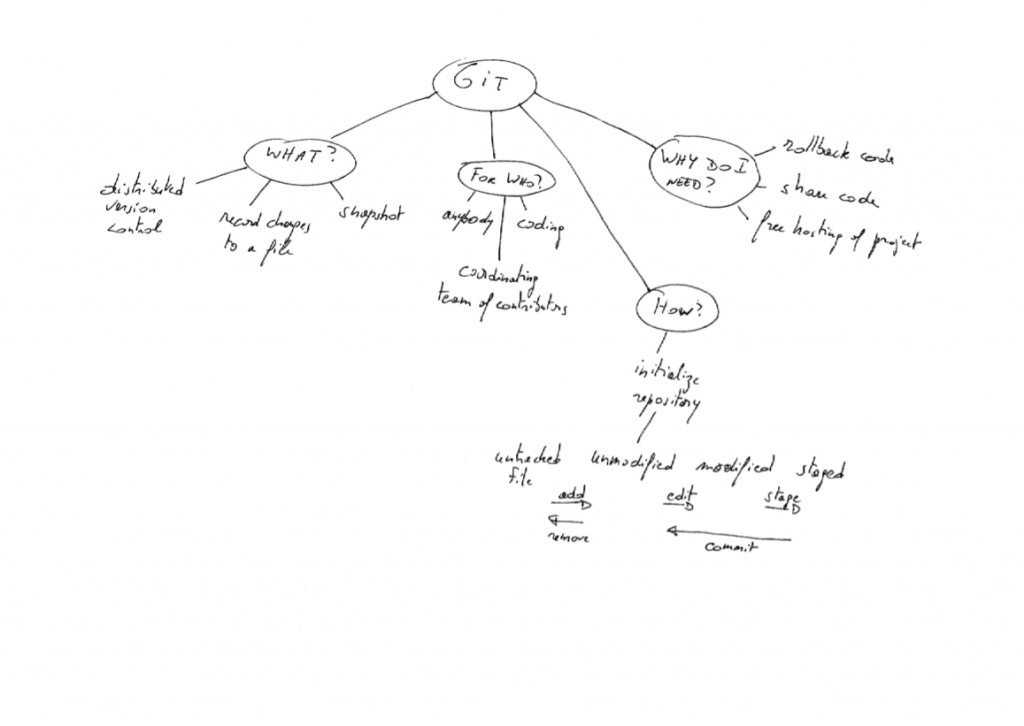 GiT
WHAT?
distributed
version
control
record changes
to a file
snapshot
FOR WHO?
anybody
coding
coordinating
team of contributors
WHY DO I
NEED?
rollback code
share code
free hosting of project
HOW?
initialize
repository
untracked
file
unmodified
modified
staged
add
edit
stage
remove
commit